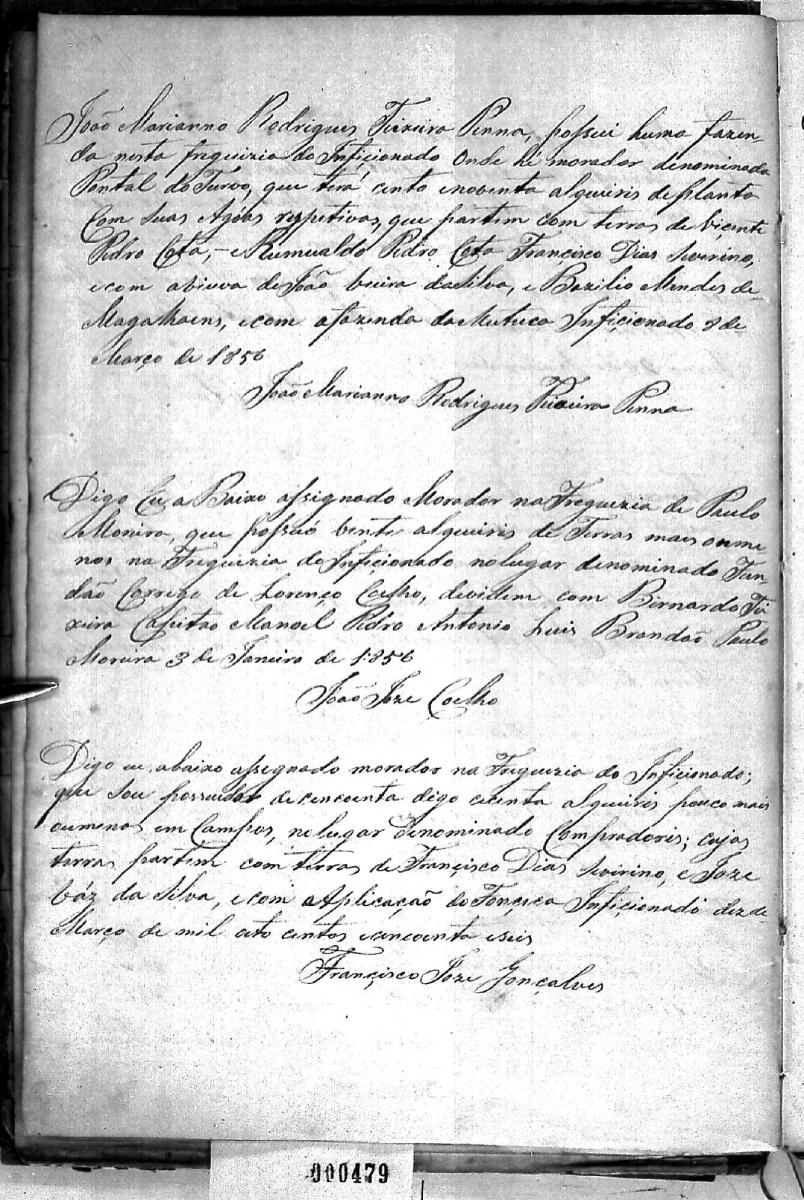 João Marianno Rodrigues Teixeira Penna, possui huma fazen-
da nesta freguizia do Inficionado Onde he morador denominada
Pontal do Turvo, que terá cento enoventa alqueiris de planta
Com suas Agôas respetivas, que partem com terras de Vicente
Pedro Cota, - e Rumualdo Pedro Cota Francisco Dias Siverino,
ecom aviuva de João vieira da Silva, e Bazilio Mendes de
Magalhaens, ecom afazenda da Mutuca Inficionado 8 de
Março de 1856
João Marianno Rodrigues Teixeira Penna
Digo Eu, a Baixo assignado Morador na Freguizia de Paulo
Moreira, que possuó vente alqueiris de Terras mais oume
nos na Freguizia do Inficionado nolugar denominado Fun
dão Corrego de Lorenço Coelho, devidem com Bernardo Tei
xeira Capitão Manoel Pedro Antonio Luis Brandaõ Paulo
Moreira 3 de Janeiro de 1856
João Joze Coelho
Digo eu, abaixo assegnado morador na Freguizia do Inficionado;
que sou possuidor de cencoenta digo cecenta alqueiris pouco mais
oumenos em Campos, nolugar denominado Compradoris; cujas
terras partem com terras de Francisco Dias Siverino, e Joze
Váz da Silva, ecom aAplicação do Fonceca Inficionado dez de
Março de mil oito centos ecencoenta eseis
Francisco Joze Gonçalves
000479